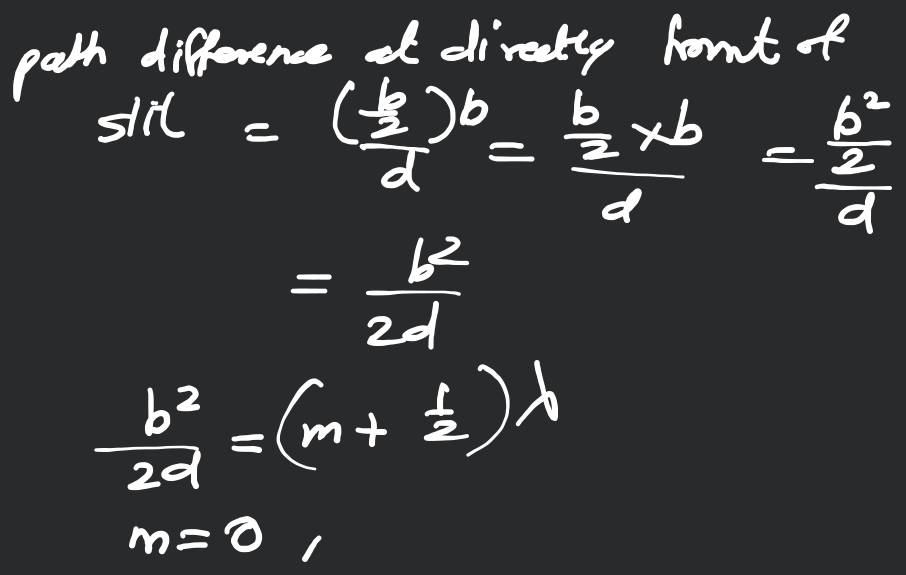 path difference at directly fromt of
slit = (b/2)b/d = b/2 × b/d = b²/2/d
= b²/2d
b²/2d = (m + 1/2)λ
m = 0 ,